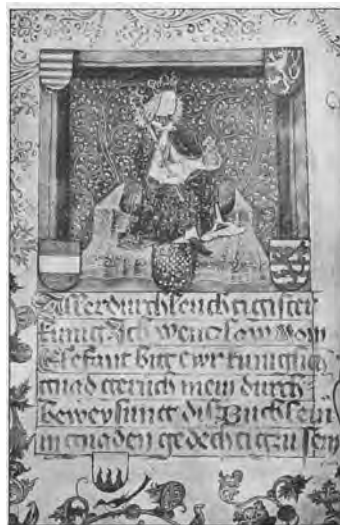 Allerdurchleuchtigister
kunig Ich wenczlaw vom
Elefant bitt ewr kuniglich
gnad geruch mein durch
beweysung dis Buchlein
in gnaden gedechtig zu sein